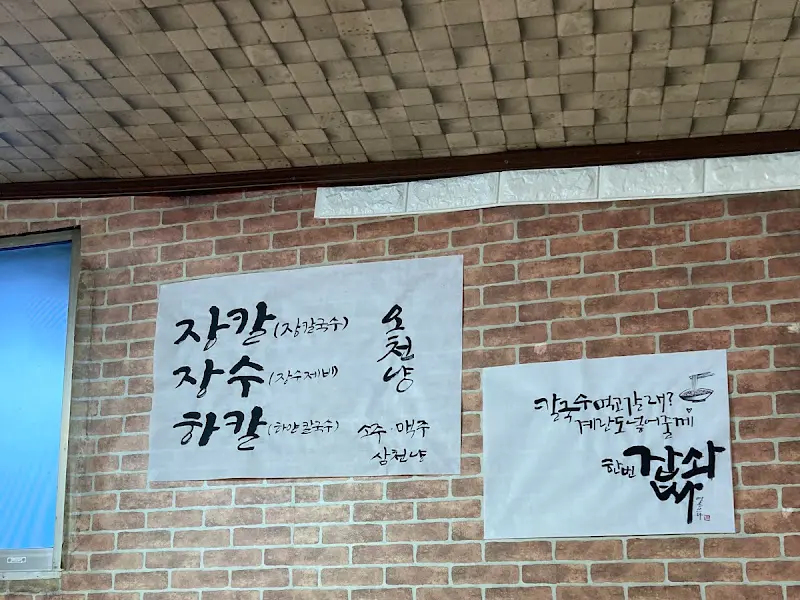 장칼 (장칼국수)
장수 (장수제비)
하칼 (하얀칼국수)
오천냥
소주·맥주
삼천냥
칼국수먹고갈래?
계란도넣어줄게
한번 잡솨
봐